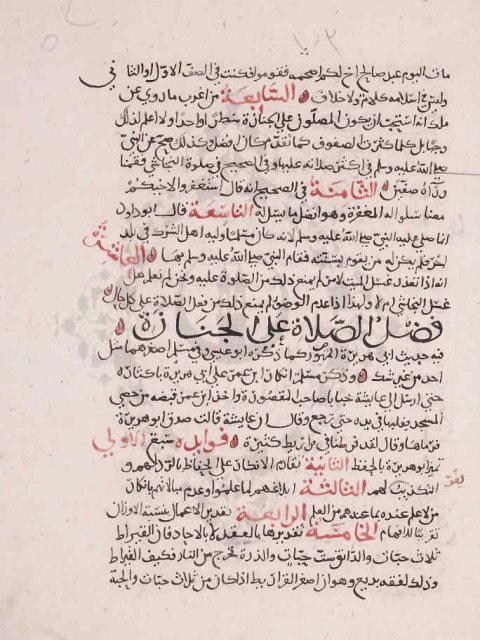 مات اليوم عبد صالح اخ لكم اصحمه فقوموا فكنت في الصف الاول او الثاني
وليس في اسلامه كلام ولا خلاف السابعة من اغرب ما روي عن
ملك انه استحب ان يكون المصلون على الجنازة سطرا واحدا ولا اعلم لذلك
وجها بل كلما كثرت الصفوف كما تقدم كان افضل وكذلك صح عن النبي
صلى الله عليه وسلم في صلاته عليه وفي الصحيح في صلوة النجاشي فقمنا
وراه صفين الثامنة في الصحيح انه قال استغفروا لاخيكم
معنا سلوا له المغفرة وهو افضل ما يسئل له التاسعة قال ابو داود
انما صلى عليه النبي صلى الله عليه وسلم لانه كان مسلما وليه اهل الشرك في بلد
اخر فلم يكن له من يقوم بسنته فقام النبي صلى الله عليه وسلم بها العاشرة
انه اذا تعذر غسل الميت لامر لم يمنع ذلك من الصلوة عليه ونحن لم نعلم هل
غسل النجاشي ام لا ولهذا اذا عدم الوضوء لم يمنع ذلك من فعل الصلاة على كل حال
فضل الصلاة على الجنازة
فيه حديث ابي هريرة المشهور كما ذكره ابو عيسى وفي مسلم اصغرهما مثل
احد من غير شك وذكر مسلم انكار ابن عمر على ابي هريرة باكثاره
حتى ارسل الى عايشة خبابا صاحب المقصورة واخذ ابن عمر قبضة من حصى
المسجد يقلبها في يده حتى رجع وقال ان عايشة قالت صدق ابو هريرة
فرماها وقال لقد فرطنا في قراريط كثيرة فوايده سبع الاولى
تميز ابو هريرة بالحفظ الثانية تقادم الانكار على الحفاظ بالرد لهم و
التكذيب لهم الثالثة
من لا علم عنده ما عندهم من العلم الرابعة تقدير الاعمال بنسبة الاوزان
تقريبا للافهام الخامسة تقديرها بالعقلة بالاحاد فان القيراط
ثلاث حبات والدانق ست حبات والذرة تخرج من النار فكيف القيراط
وذلك لفقه بديع وهو ان اصغر القراريط اذا كان من ثلاث حبات والحبة